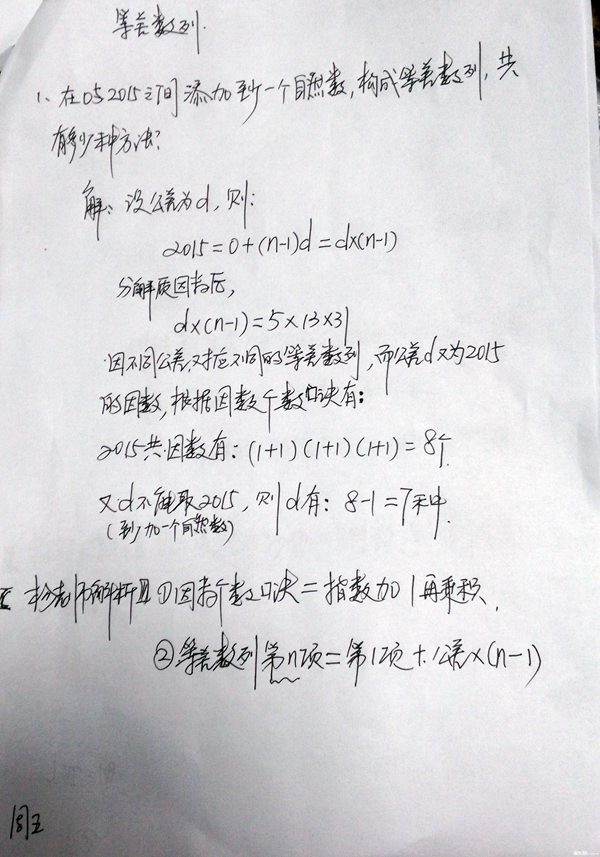 等差数列.
1、在0与2015之间添加至少一个自然数,构成等差数列,共
有多少种方法?
解:设公差为d,则:
2015=0+(n-1)d=d×(n-1)
分解质因数后,
d×(n-1)=5×13×31
因不同公差对应不同的等差数列,而公差d又为2015
的因数,根据因数个数口诀有:
2015共因数有:(1+1)(1+1)(1+1)=8个.
又d不能取2015,则d有:8-1=7种.
(至少加一个自然数)
老师解析】①因数个数口诀=指数加1再乘积.
②等差数列第n项=第1项+公差×(n-1)
周五